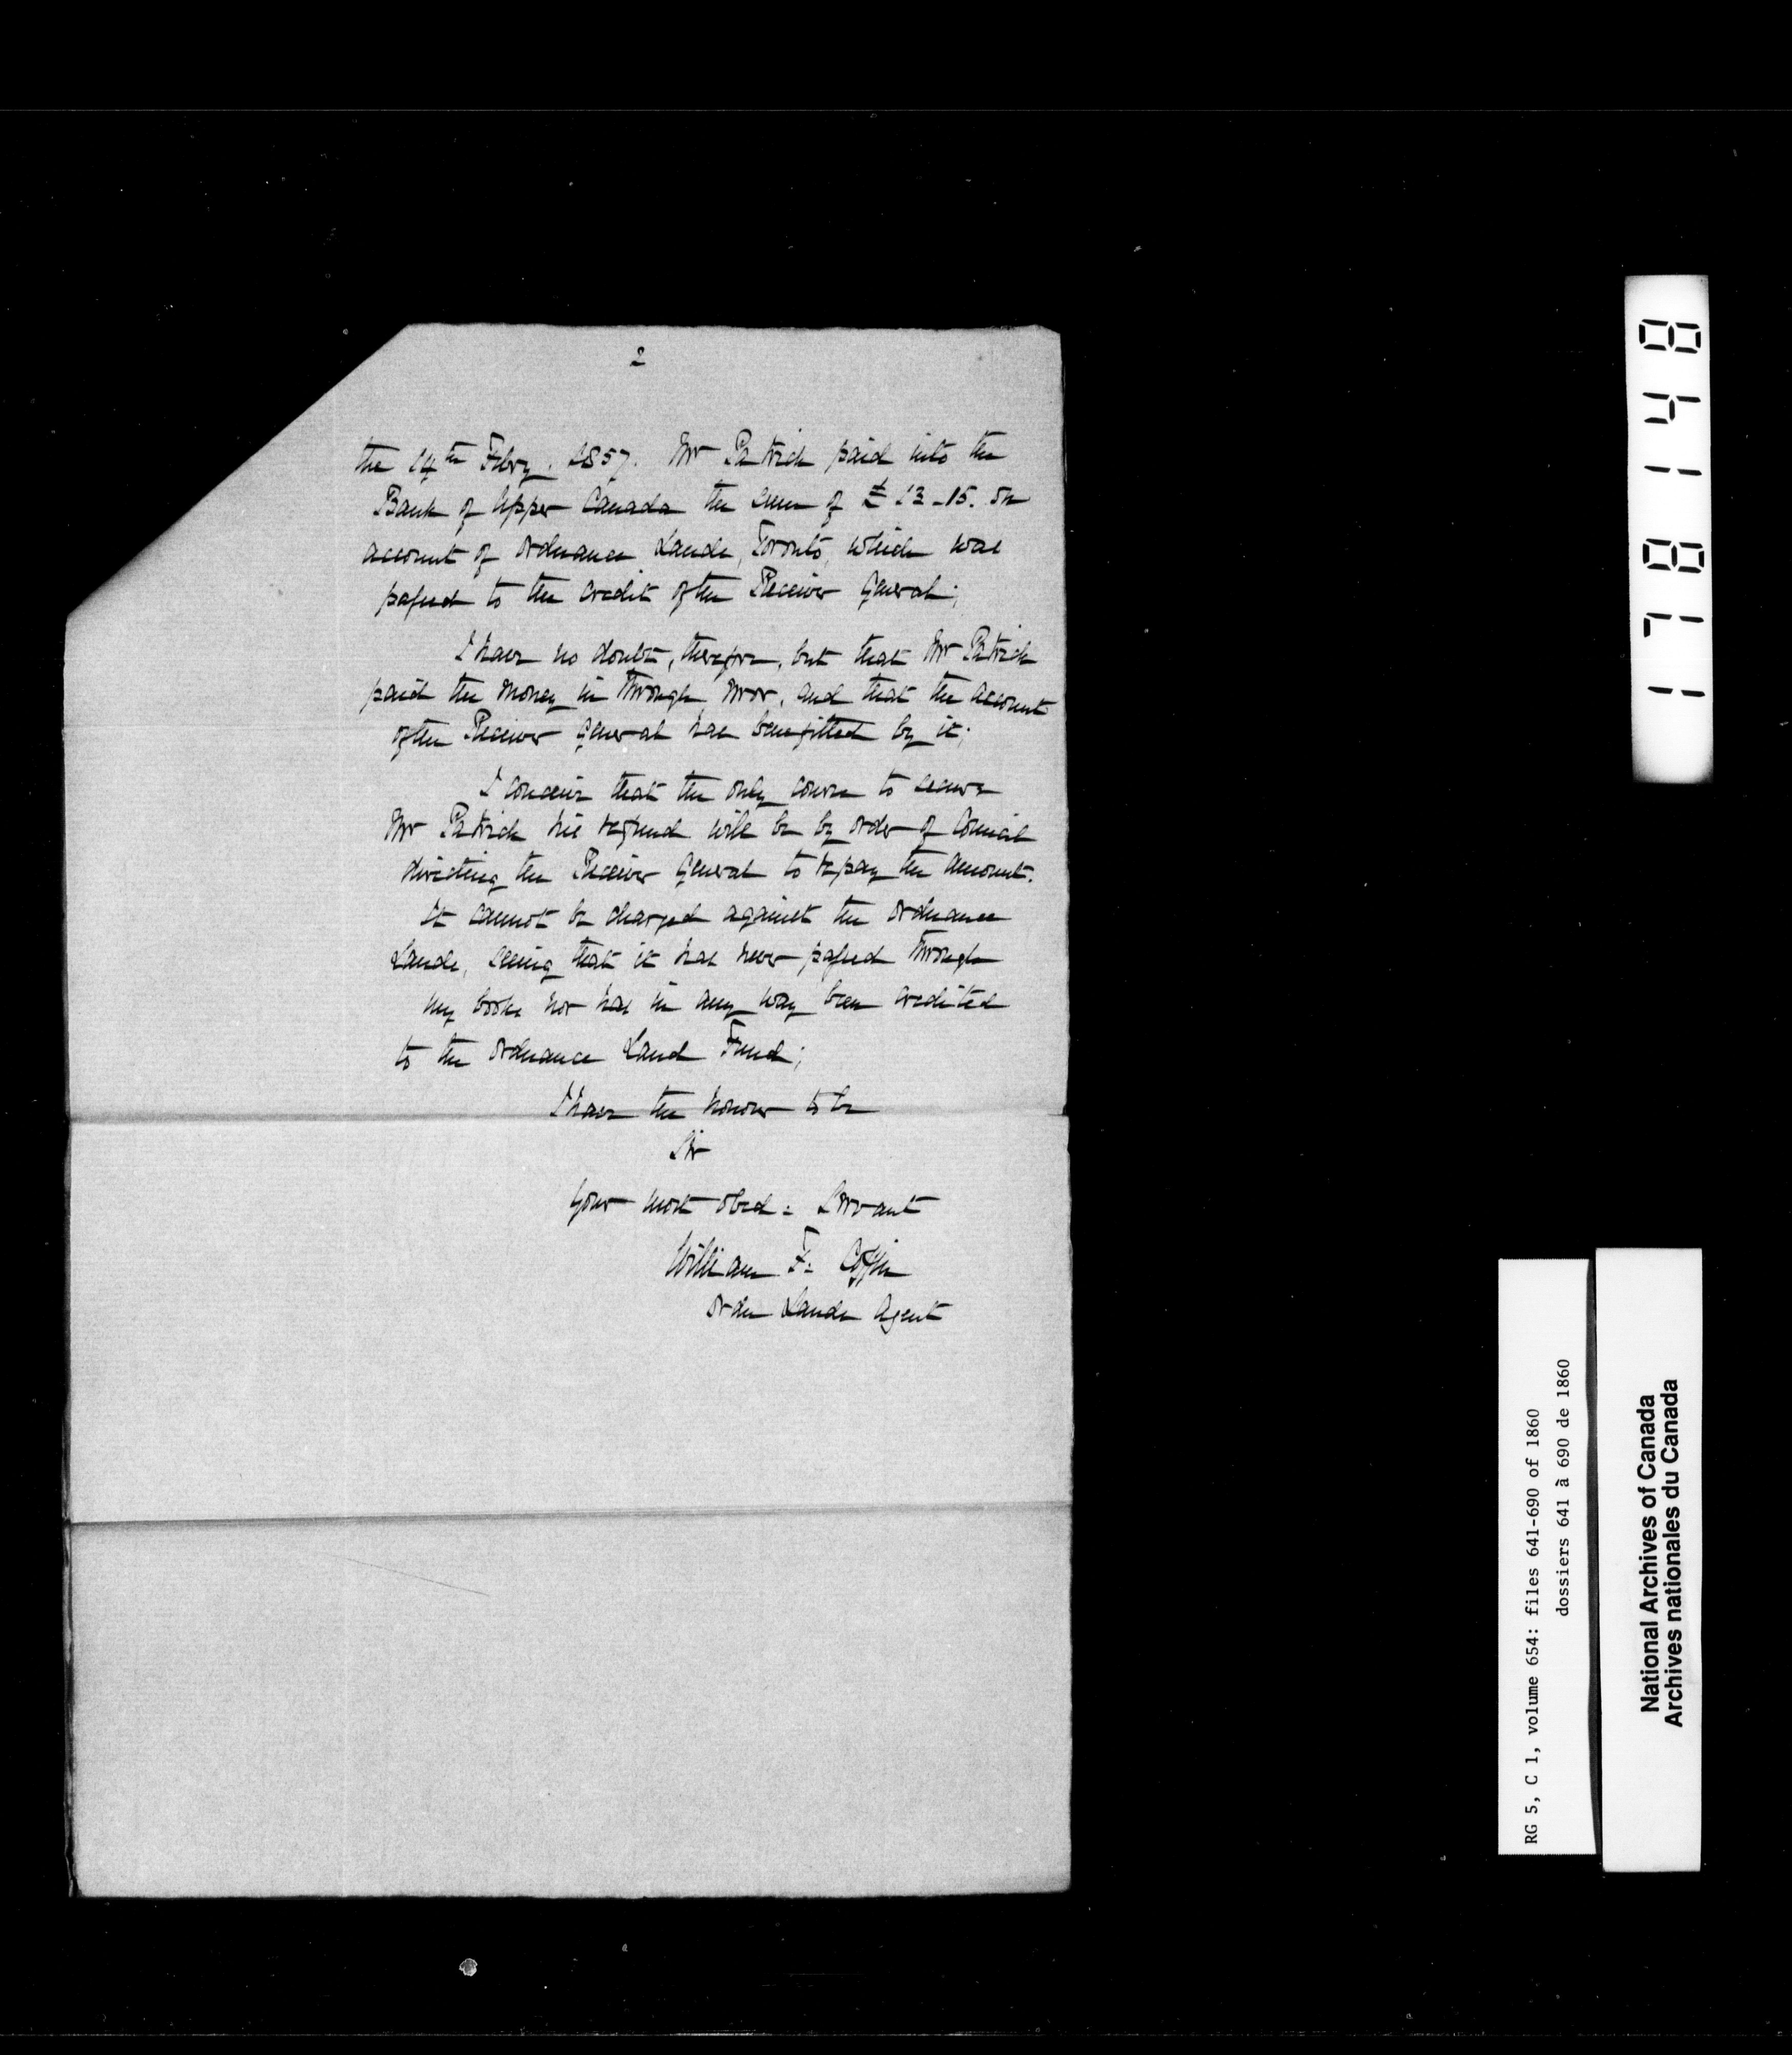 2
the 14th Febry. 1857. Mr Patrick paid into the
Bank of Upper Canada the sum of £13-15. on
account of Ordnance Lands, Toronto, which was
passed to the credit of the Receiver General;
I have no doubt, therefore, but that Mr Patrick
paid the money in through error, and that the account
of the Receiver General has benefitted by it;
I conceive that the only course to secure
Mr Patrick his refund will be by order of Council
directing the Receiver General to repay the amount.
It cannot be charged against the Ordnance
Lands, seeing that it has never passed through
my books nor has in any way been credited
to the Ordnance Land Fund;
I have the honour to be
Sir
Your most obed: Servant
William F: Coffin
Ordn Lands Agent
871418
RG 5, C 1, volume 654: files 641-690 of 1860
dossiers 641 à 690 de 1860
National Archives of Canada
Archives nationales du Canada